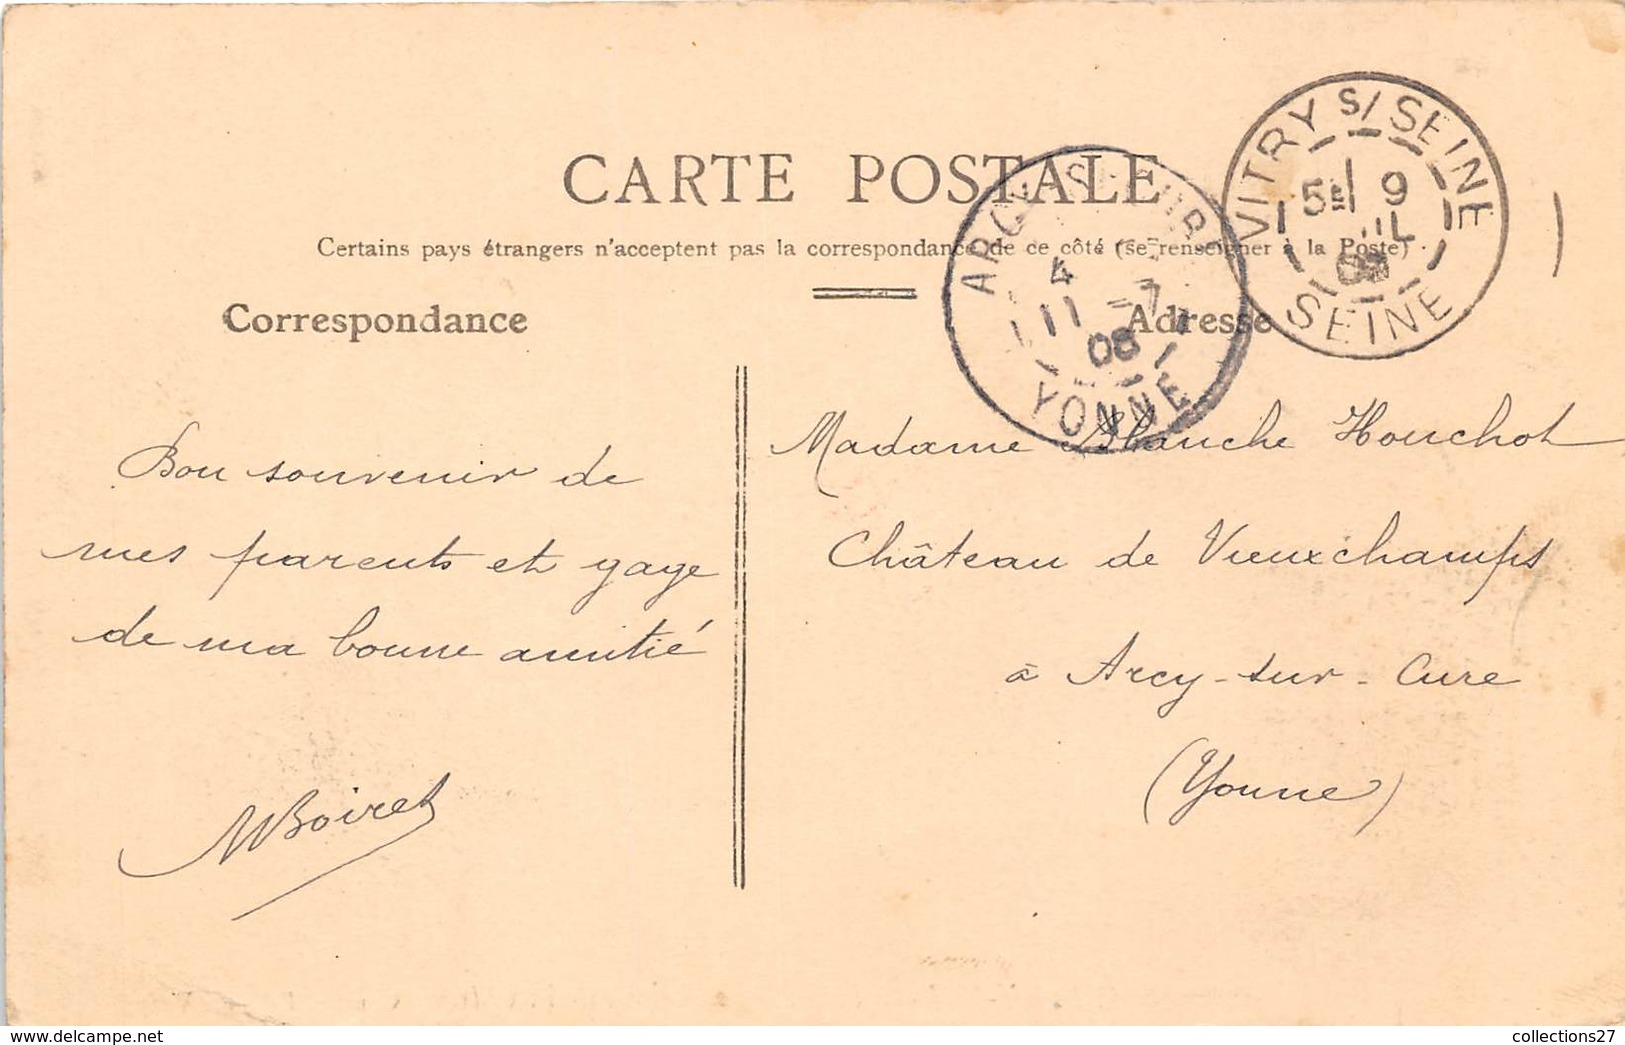 CARTE POSTALE
Certains pays étrangers n'acceptent pas la correspondance de ce côté (se renseigner à la Poste)
Correspondance
Adresse
VITRY S/ SEINE
5E 9
JIL
08
SEINE
ARCY-S-CURE
4
11 -7
08
YONNE
Bon souvenir de
mes parents et gage
de ma bonne amitié
MBoiret
Madame Blanche Houchot
Château de Vieuxchamps
à Arcy-sur-Cure
(Yonne)
collections27